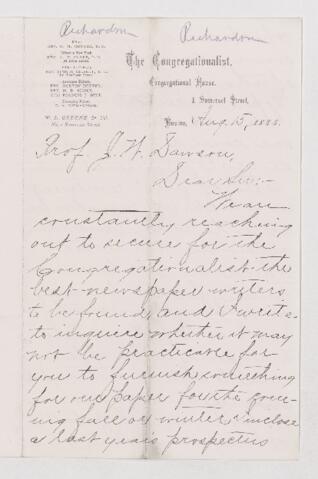 Richardson
Richardson
The Congregationalist,
Congregational House.
1 Somerset Street,
W. L. GREENE & CO.
Boston, Aug 15, 1883.
Prof. J. W. Dawson,
Dear Sir:-
We are
constantly reaching
out to secure for the
Congregationalist the
best newspaper writers
to be found, and I write
to inquire whether it may
not be practicable for
you to furnish something
for our paper for the com-
ing fall or winter. I inclose
a last year's prospectus